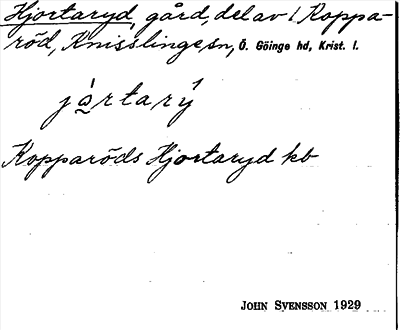 Hjortaryd, gård, del av 1 Koppa-
röd, Knisslinge sn, Ö. Göinge hd, Krist. l.
Kopparöds Hjortaryd kb
JOHN SVENSSON 1929